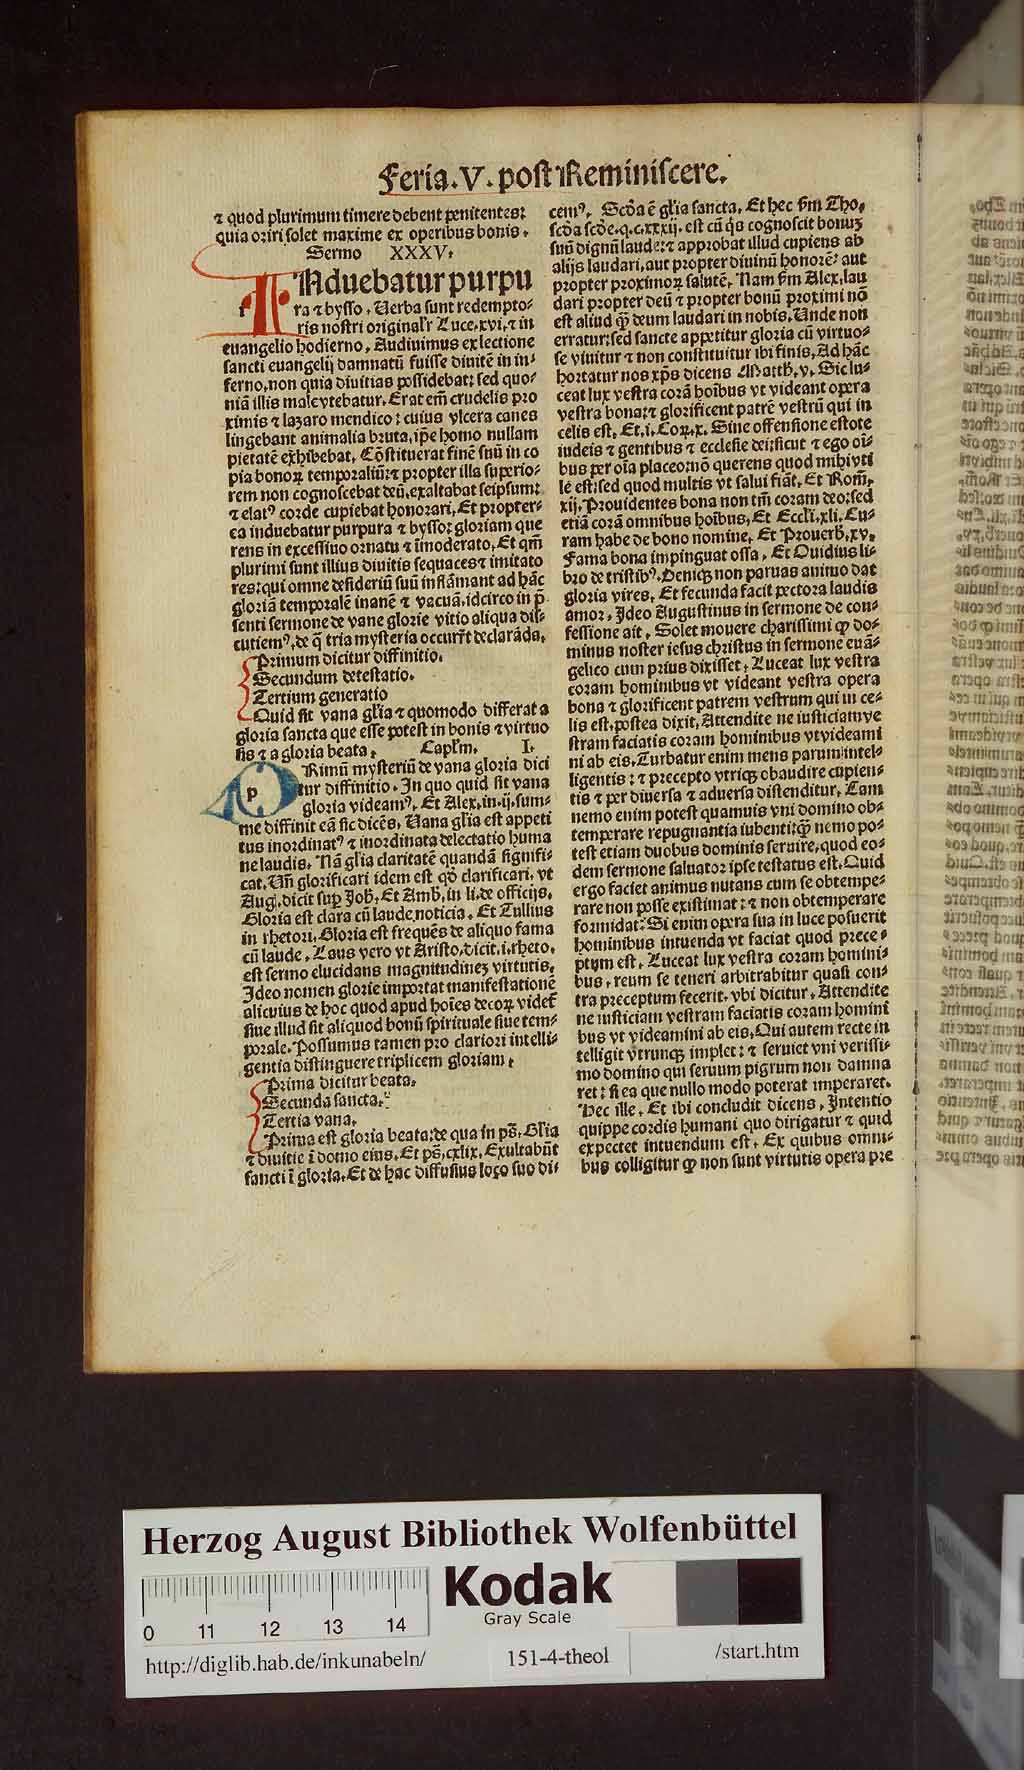 Feria.V.post Reminiscere.
⁊ quod plurimum timere debent penitentes:
quia oriri solet maxime ex operibus bonis.
Sermo XXXV.
INduebatur purpu
ra ⁊ bysso. Verba sunt redempto-
ris nostri originalr̃ Luce.xvi.⁊ in
euangelio hodierno. Audiuimus ex lectione
sancti euangelij damnatũ fuisse diuitẽ in in-
ferno,non quia diuitias possidebat: sed quo-
niã illis male vtebatur. Erat em̃ crudelis pro
ximis ⁊ lazaro mendico: cuius vlcera canes
lingebant animalia bruta,ip̃e homo nullam
pietatẽ exhibebat. Cõstituerat finẽ suũ in co
pia bonoꝝ temporaliũ:⁊ propter illa superio-
rem non cognoscebat deũ,exaltabat seipsum:
⁊ elatꝰ corde cupiebat honorari. Et propter-
ea induebatur purpura ⁊ bysso: gloriam que
rens in excessiuo ornatu ⁊ ĩmoderato. Et qm̃
plurimi sunt illius diuitis sequaces ⁊ imitato
res:qui omne desideriũ suũ inflãmant ad hãc
gloriã temporalẽ inanẽ ⁊ vacuã.idcirco in p̃
senti sermone de vane glorie vitio aliqua dis-
cutiemꝰ.de q̃ tria mysteria occurrũt declarãda.
Primum dicitur diffinitio.
Secundum detestatio.
Tertium generatio
Quid sit vana gl̃ia ⁊ quomodo differat a
gloria sancta que esse potest in bonis ⁊ virtuo
sis ⁊ a gloria beata. Capl̃m. I.
p
PRimũ mysteriũ de vana gloria dici
tur diffinitio. In quo quid sit vana
gloria videamꝰ. Et Alex.in.ij.sum-
me diffinit eã sic dicẽs. Vana gl̃ia est appeti
tus inordinatꝰ ⁊ inordinata delectatio huma
ne laudis. Nã gl̃ia claritatẽ quandã signifi-
cat. Vñ glorificari idem est qd̃ clarificari. vt
Aug. dicit sup̃ Joh̃. Et Amb̃. in li.de officijs.
Gloria est clara cũ laude noticia. Et Tullius
in rhetori. Gloria est frequẽs de aliquo fama
cũ laude. Laus vero vt Aristo.dicit.i.rheto.
est sermo elucidans magnitudinẽ virtutis.
Ideo nomen glorie importat manifestationẽ
alicuius de hoc quod apud hoĩes decoꝝ videt̃
siue illud sit aliquod bonũ spirituale siue tem-
porale. Possumus tamen pro clariori intelli-
gentia distinguere triplicem gloriam.
Prima dicitur beata.
Secunda sancta.
Tertia vana.
Prima est gloria beata:de qua in ps̃. Gl̃ia
⁊ diuitie ĩ domo eius. Et ps̃.cxlix. Exultabũt
sancti ĩ gloria. Et de hac diffusius loco suo di-
cemꝰ. Scd̃a ẽ gl̃ia sancta. Et hec s̃m Tho.
scd̃a scd̃e.q.c.xxxij. est cũ q̃s cognoscit bonuȝ
suũ dignũ laude:⁊ approbat illud cupiens ab
alijs laudari, aut propter diuinũ honorẽ: aut
propter proximoꝝ salutẽ. Nam s̃m Alex.lau
dari propter deũ ⁊ propter bonũ proximi nõ
est aliud q̃ȝ deum laudari in nobis. Vnde non
erratur:sed sancte appetitur gloria cũ virtuo-
se viuitur ⁊ non constituitur ibi finis. Ad hãc
hortatur nos xp̃s dicens Matth̃.v. Sic lu-
ceat lux vestra corã hoĩbus vt videant opera
vestra bona:⁊ glorificent patrẽ vestrũ qui in
celis est. Et.i.Coꝝ.x. Sine offensione estote
iudeis ⁊ gentibus ⁊ ecclesie dei:sicut ⁊ ego oĩ-
bus per oĩa placeo:nõ querens quod mihi vti
le est:sed quod multis vt salui fiãt. Et Rom̃.
xij. Prouidentes bona non tm̃ coram deo:sed
etiã corã omnibus hoĩbus. Et Eccl̃i.xli. Cu-
ram habe de bono nomine. Et Prouerb̃.xv.
Fama bona impinguat ossa. Et Ouidius li-
bro de tristibꝰ. Deniqȝ non paruas animo dat
gloria vires. Et fecunda facit pectora laudis
amor. Ideo Augustinus in sermone de con-
fessione ait. Solet mouere charissimi ꝙ do-
minus noster iesus christus in sermone euã-
gelico cum prius dixisset. Luceat lux vestra
coram hominibus vt videant vestra opera
bona ⁊ glorificent patrem vestrum qui in ce-
lis est.postea dixit. Attendite ne iusticiam ve
stram faciatis coram hominibus vt videami
ni ab eis. Turbatur enim mens parum intel-
ligentis: ⁊ precepto vtriqȝ obaudire cupien-
tis ⁊ per diuersa ⁊ aduersa distenditur. Tam
nemo enim potest quamuis vni domino ob-
temperare repugnantia iubenti:q̃ȝ nemo po-
test etiam duobus dominis seruire, quod eo-
dem sermone saluator ipse testatus est. Quid
ergo faciet animus nutans cum se obtempe-
rare non posse existimat: ⁊ non obtemperare
formidat: Si enim opera sua in luce posuerit
hominibus intuenda vt faciat quod prece-
ptum est. Luceat lux vestra coram homini-
bus. reum se teneri arbitrabitur quasi con-
tra preceptum fecerit. vbi dicitur. Attendite
ne iusticiam vestram faciatis coram homini
bus vt videamini ab eis. Qui autem recte in
telligit vtrunqȝ implet: ⁊ seruiet vni verissi-
mo domino qui seruum pigrum non damna
ret: si ea que nullo modo poterat imperaret.
Hec ille. Et ibi concludit dicens. Intentio
quippe cordis humani quo dirigatur ⁊ quid
expectet intuendum est. Ex quibus omni-
bus colligitur ꝙ non sunt virtutis opera pre
Herzog August Bibliothek Wolfenbüttel
Kodak
Gray Scale
0 11 12 13 14
http://diglib.hab.de/inkunabeln/ 151-4-theol /start.htm